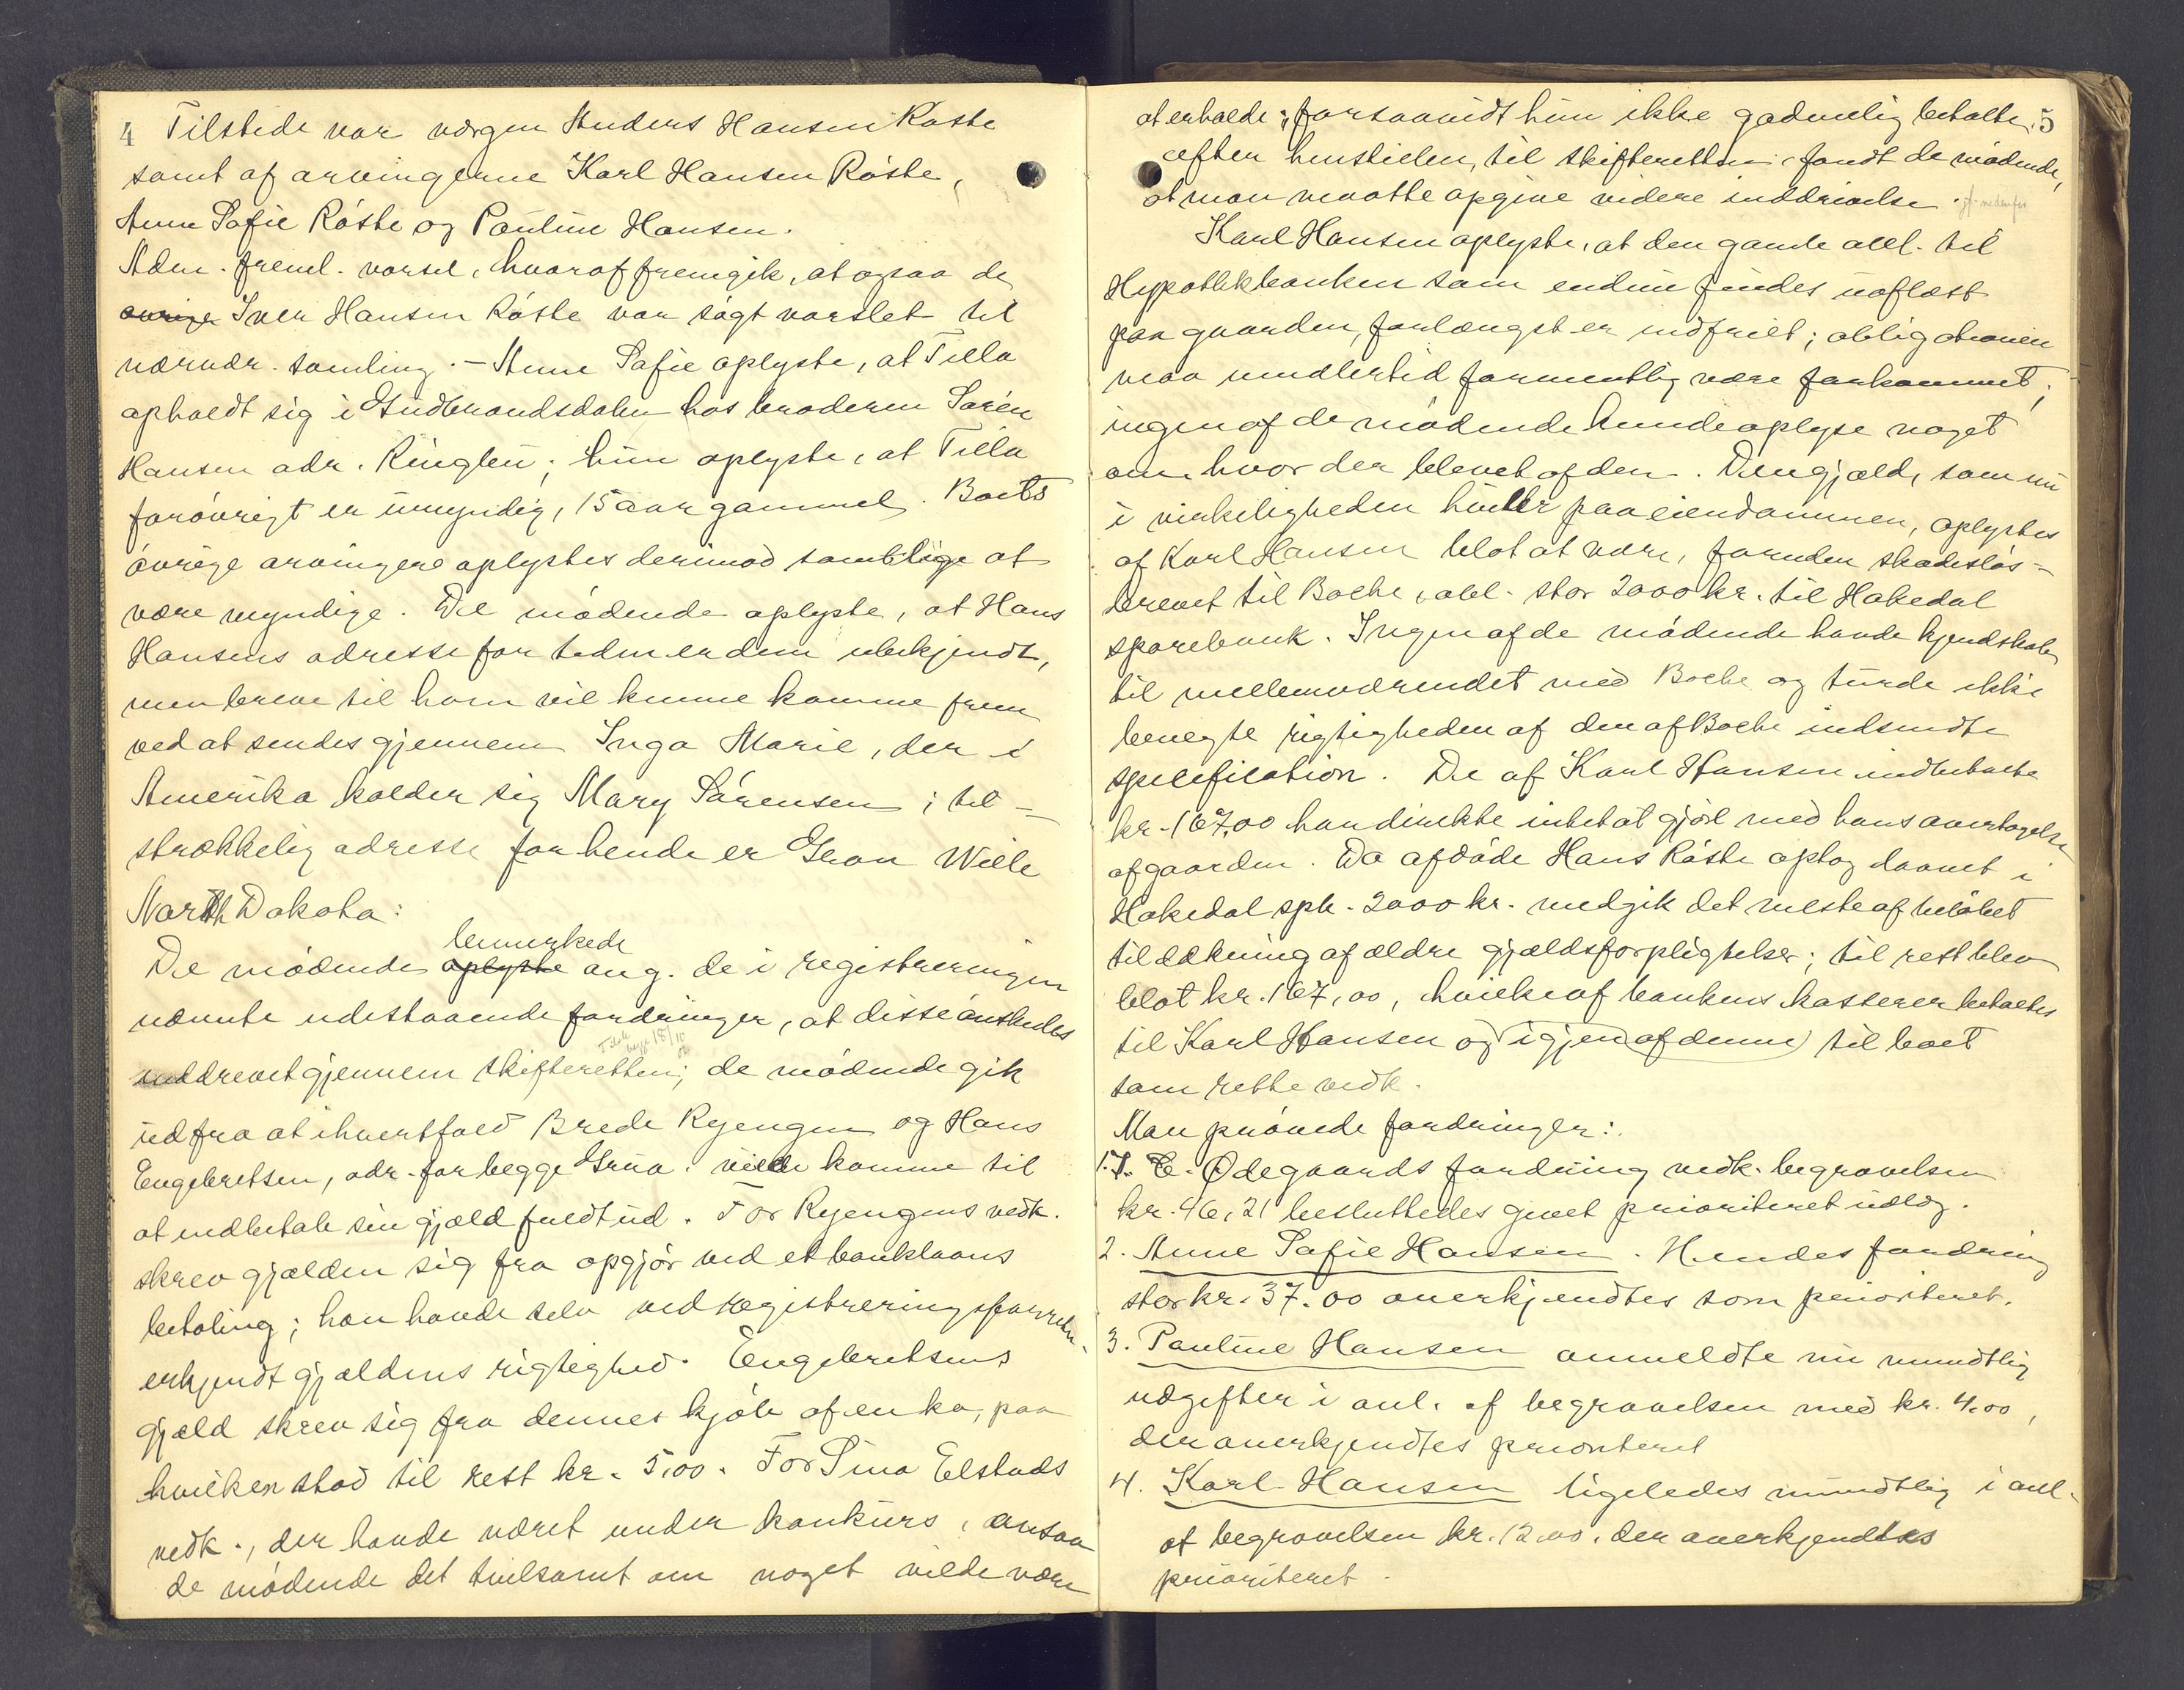 4 Tilstede var vergen Anders Hansen Røste
samt af arvingerne Karl Hansen Røste,
Anne Sofie Røste og Pauline Hansen.
Adm. freml. varsel, hvoraf fremgik, at ogsaa de
øvrige Iver Hansen Røste var søgt varslet til
nærvær. samling. – Anne Sofie oplyste, at Tilla
opholdt sig i Gudbrandsdalen hos broderen Søren
Hansen adr. Ringbu; hun oplyste, at Tilla
forøvrigt er umyndig, 15 aar gammel. Boets
øvrige arvinger oplystes derimod samtlige at
være myndige. De mødende oplyste, at Hans
Hansens adresse for tiden er dem ubekjendt,
men breve til ham vil kunne komme frem
ved at sendes gjennem Inga Marie, der i
Amerika kalder sig Mary Sørensen; til-
strækkelig adresse for hende er Gran Wille
North Dakota:
bemerkede
De mødende oplyste ang. de i registreringen
nævnte udestaaende fordringer, at disse ønskedes
inddrevet gjennem skifteretten; de mødende gik
ud fra at ihvertfald Brede Ryengen og Hans
Engebretsen, adr. for begge Grua. vilde komme til
at indbetale sin gjæld fuldt ud. For Ryengens vedk.
skrev gjælden sig fra opgjør ved et banklaans
betaling; han havde selv ved registreringsforretn.
erkjendt gjældens rigtighed. Engebretsens
gjæld skrev sig fra dennes kjøb af en ko, paa
hvilken stod til rest kr. 5,00. For Sina Elstads
vedk., der havde været under konkurs, ansaa
de mødende det tvilsomt om noget vilde være
at erholde; forsaavidt hun ikke godvillig betalte 5
efter henstillen til skifteretten, fandt de mødende,
at man maatte opgive videre inddrivelse. jf. nedenfor
Karl Hansen oplyste, at den gamle obl. til
Hypothekbanken som endnu findes uaflæst
paa gaarden, forlængst er indfriet; obligationen
maa imidlertid formentlig være forkommet;
ingen af de mødende kunde oplyse noget
om hvor der blevet af den. Den gjæld, som nu
i virkeligheden hviler paa eiendommen, oplystes
af Karl Hansen blot at være, foruden skadesløs-
brevet til Boehe, obl. stor 2000 kr. til Hakedal
sparebank. Ingen af de mødende havde kjendskab
til mellemværendet med Boehe og turde ikke
benegte rigtigheden af den af Boehe indsendte
specification. De af Karl Hansen indbetalte
kr. 167,00 har direkte intet at gjøre med hans overtagelse
af gaarden. Da afdøde Hans Røste optog laanet i
Hakedal spb. 2000 kr. medgik det meste af beløbet
til dækning af ældre gjældsforpligtelser; til rest blev
blot kr. 167,00, hvilke af bankens kasserer betaltes
til Karl Hansen og igjen af denne til boet
som rette vedk.
Man prøvede fordringer:
1. T. E. Ødegaards fordring vedk. begravelsen
kr. 46,21 besluttedes givet prioriteret udlæg.
2. Anne Sofie Hansen. Hendes fordring
stor kr. 37.00 anerkjendtes som prioriteret.
3. Pauline Hansen anmeldte nu mundtlig
udgifter i anl. af begravelsen med kr. 4.00,
der anerkjendtes prioriteret
4. Karl Hansen ligeledes mundtlig i anl.
af begravelsen kr. 12,00. der anerkjendtes
prioriteret.